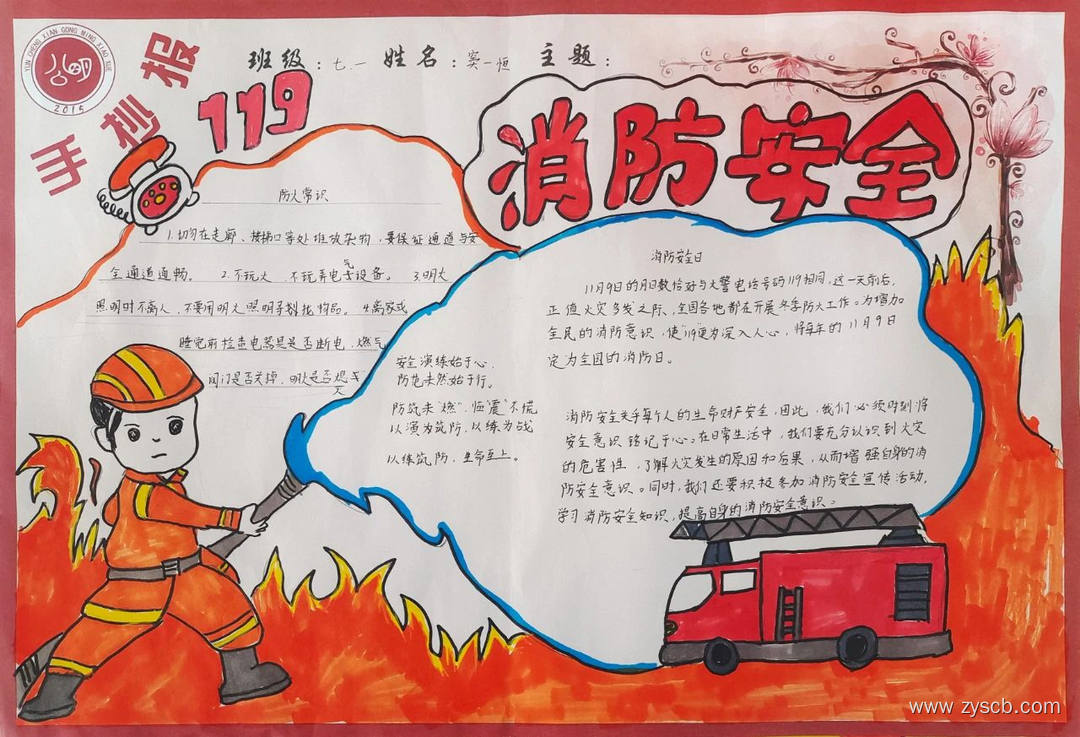 YUN CHENG XIAN GONG MING XIAO XUE
2015
手抄报
班级：七.一 姓名：窦一恒 主题：
119
消防安全
防火常识
1.切勿在走廊、楼梯口等处堆放杂物，要保证通道与安
全通道通畅。 2.不玩火 不玩弄电气设备。 3.明火
照明时不离人，不要用明火照明寻找物品。 4.离家或
睡觉前检查电器具是否断电，燃气
阀门是否关掉，明火是否熄灭
安全演练始于心，
防范未然始于行。
防筑未"燃"，临"震"不慌
以演为筑防，以练为战
以练筑防，生命至上。
消防安全日
11月9日的月日数恰好与火警电话号码119相同，这一天前后，
正值火灾多发之际，全国各地都在开展冬季防火工作。为增加
全民的消防意识，使"119"更为深入人心，将每年的11月9日
定为全国的消防日。
消防安全关乎每个人的生命财产安全，因此，我们必须时刻将
安全意识铭记于心。在日常生活中，我们要充分认识到火灾
的危害性，了解火灾发生的原因和后果，从而增强自身的消
防安全意识。同时，我们还要积极参加消防安全宣传活动，
学习消防安全知识，提高自身的消防安全意识。
www.zyscb.com